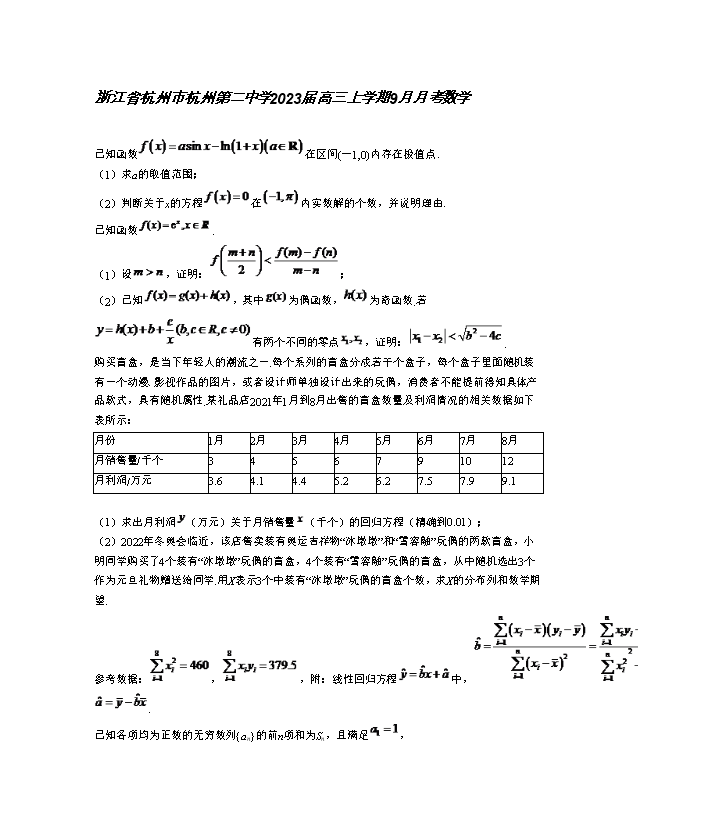 浙江省杭州市杭州第二中学2023届高三上学期9月月考数学
已知函数f(x)=asin x−ln(1+x)(a∈R)在区间(−1,0)内存在极值点.
（1）求a的取值范围；
（2）判断关于x的方程f(x)=0在(−1,π)内实数解的个数，并说明理由.
已知函数f(x)=eˣ,x∈R.
（1）设m>n，证明：f((m+n)/2)<(f(m)−f(n))/(m−n)；
（2）已知f(x)=g(x)+h(x)，其中g(x)为偶函数，h(x)为奇函数.若
y=h(x)+b+c/x(b,c∈R,c≠0)有两个不同的零点x₁,x₂，证明：|x₁−x₂|<√(b²−4c).
购买盲盒，是当下年轻人的潮流之一.每个系列的盲盒分成若干个盒子，每个盒子里面随机装
有一个动漫.影视作品的图片，或者设计师单独设计出来的玩偶，消费者不能提前得知具体产
品款式，具有随机属性.某礼品店2021年1月到8月出售的盲盒数量及利润情况的相关数据如下
表所示：
月份 1月 2月 3月 4月 5月 6月 7月 8月
月销售量/千个 3 4 5 6 7 9 10 12
月利润/万元 3.6 4.1 4.4 5.2 6.2 7.5 7.9 9.1
（1）求出月利润y（万元）关于月销售量x（千个）的回归方程（精确到0.01）；
（2）2022年冬奥会临近，该店售卖装有奥运吉祥物“冰墩墩”和“雪容融”玩偶的两款盲盒，小
明同学购买了4个装有“冰墩墩”玩偶的盲盒，4个装有“雪容融”玩偶的盲盒，从中随机选出3个
作为元旦礼物赠送给同学.用X表示3个中装有“冰墩墩”玩偶的盲盒个数，求X的分布列和数学期
望.
参考数据：∑(i=1→8)xᵢ²=460，∑(i=1→8)xᵢyᵢ=379.5，附：线性回归方程ŷ=b̂x+â中，b̂=∑(i=1→n)(xᵢ−x̄)(yᵢ−ȳ)/∑(i=1→n)(xᵢ−x̄)²=∑(i=1→n)xᵢyᵢ−/∑(i=1→n)xᵢ²−
â=ȳ−b̂x̄.
已知各项均为正数的无穷数列{aₙ}的前n项和为Sₙ，且满足a₁=1，